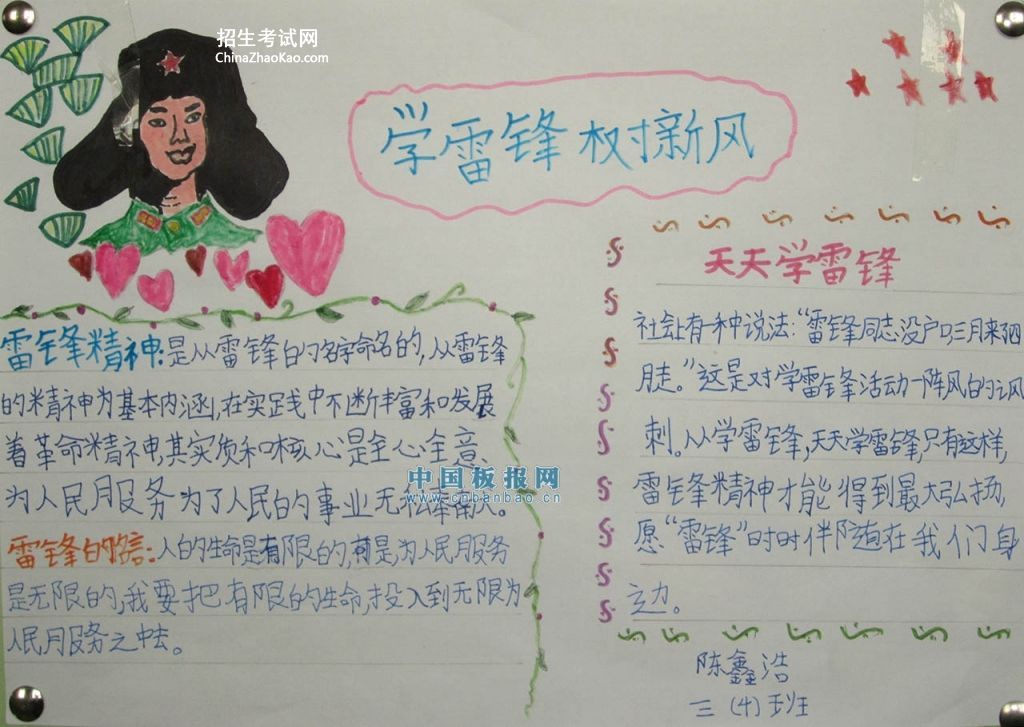 招生考试网
ChinaZhaoKao.com
学雷锋 树新风
雷锋精神:是从雷锋的名字命名的,从雷锋
的精神为基本内涵,在实践中不断丰富和发展
着革命精神,其实质和核心是全心全意、
为人民服务 为了人民的事业无私奉献。
雷锋的名言:人的生命是有限的,可是,为人民服务
是无限的,我要把有限的生命,投入到无限为
人民服务之中去。
天天学雷锋
社会上有一种说法:“雷锋同志没户口,三月来四
月走。”这是对学雷锋活动一阵风的讽
刺。从学雷锋,天天学雷锋,只有这样,
雷锋精神才能得到最大弘扬,
愿“雷锋”时时伴随在我们身
边。
陈鑫浩
三(4)班
中国板报网
www.cnbanbao.cn